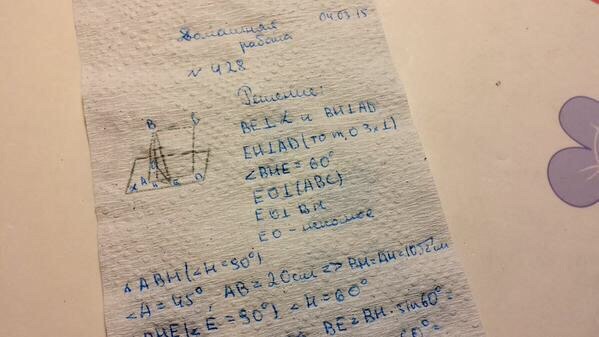 04.03.15
Домашняя
работа
№ 428
Решение:
BE⊥α и BH⊥AD
EH⊥AD (по т. о 3х⊥)
∠BHE = 60°
EO⊥(ABC)
EO⊥BH
EO - искомое
ABH (∠H = 90°)
∠A = 45°, AB = 20см => BH=AH=10√2см
BHE (∠E = 90°) ∠H = 60°
BE = BH · sin60° =